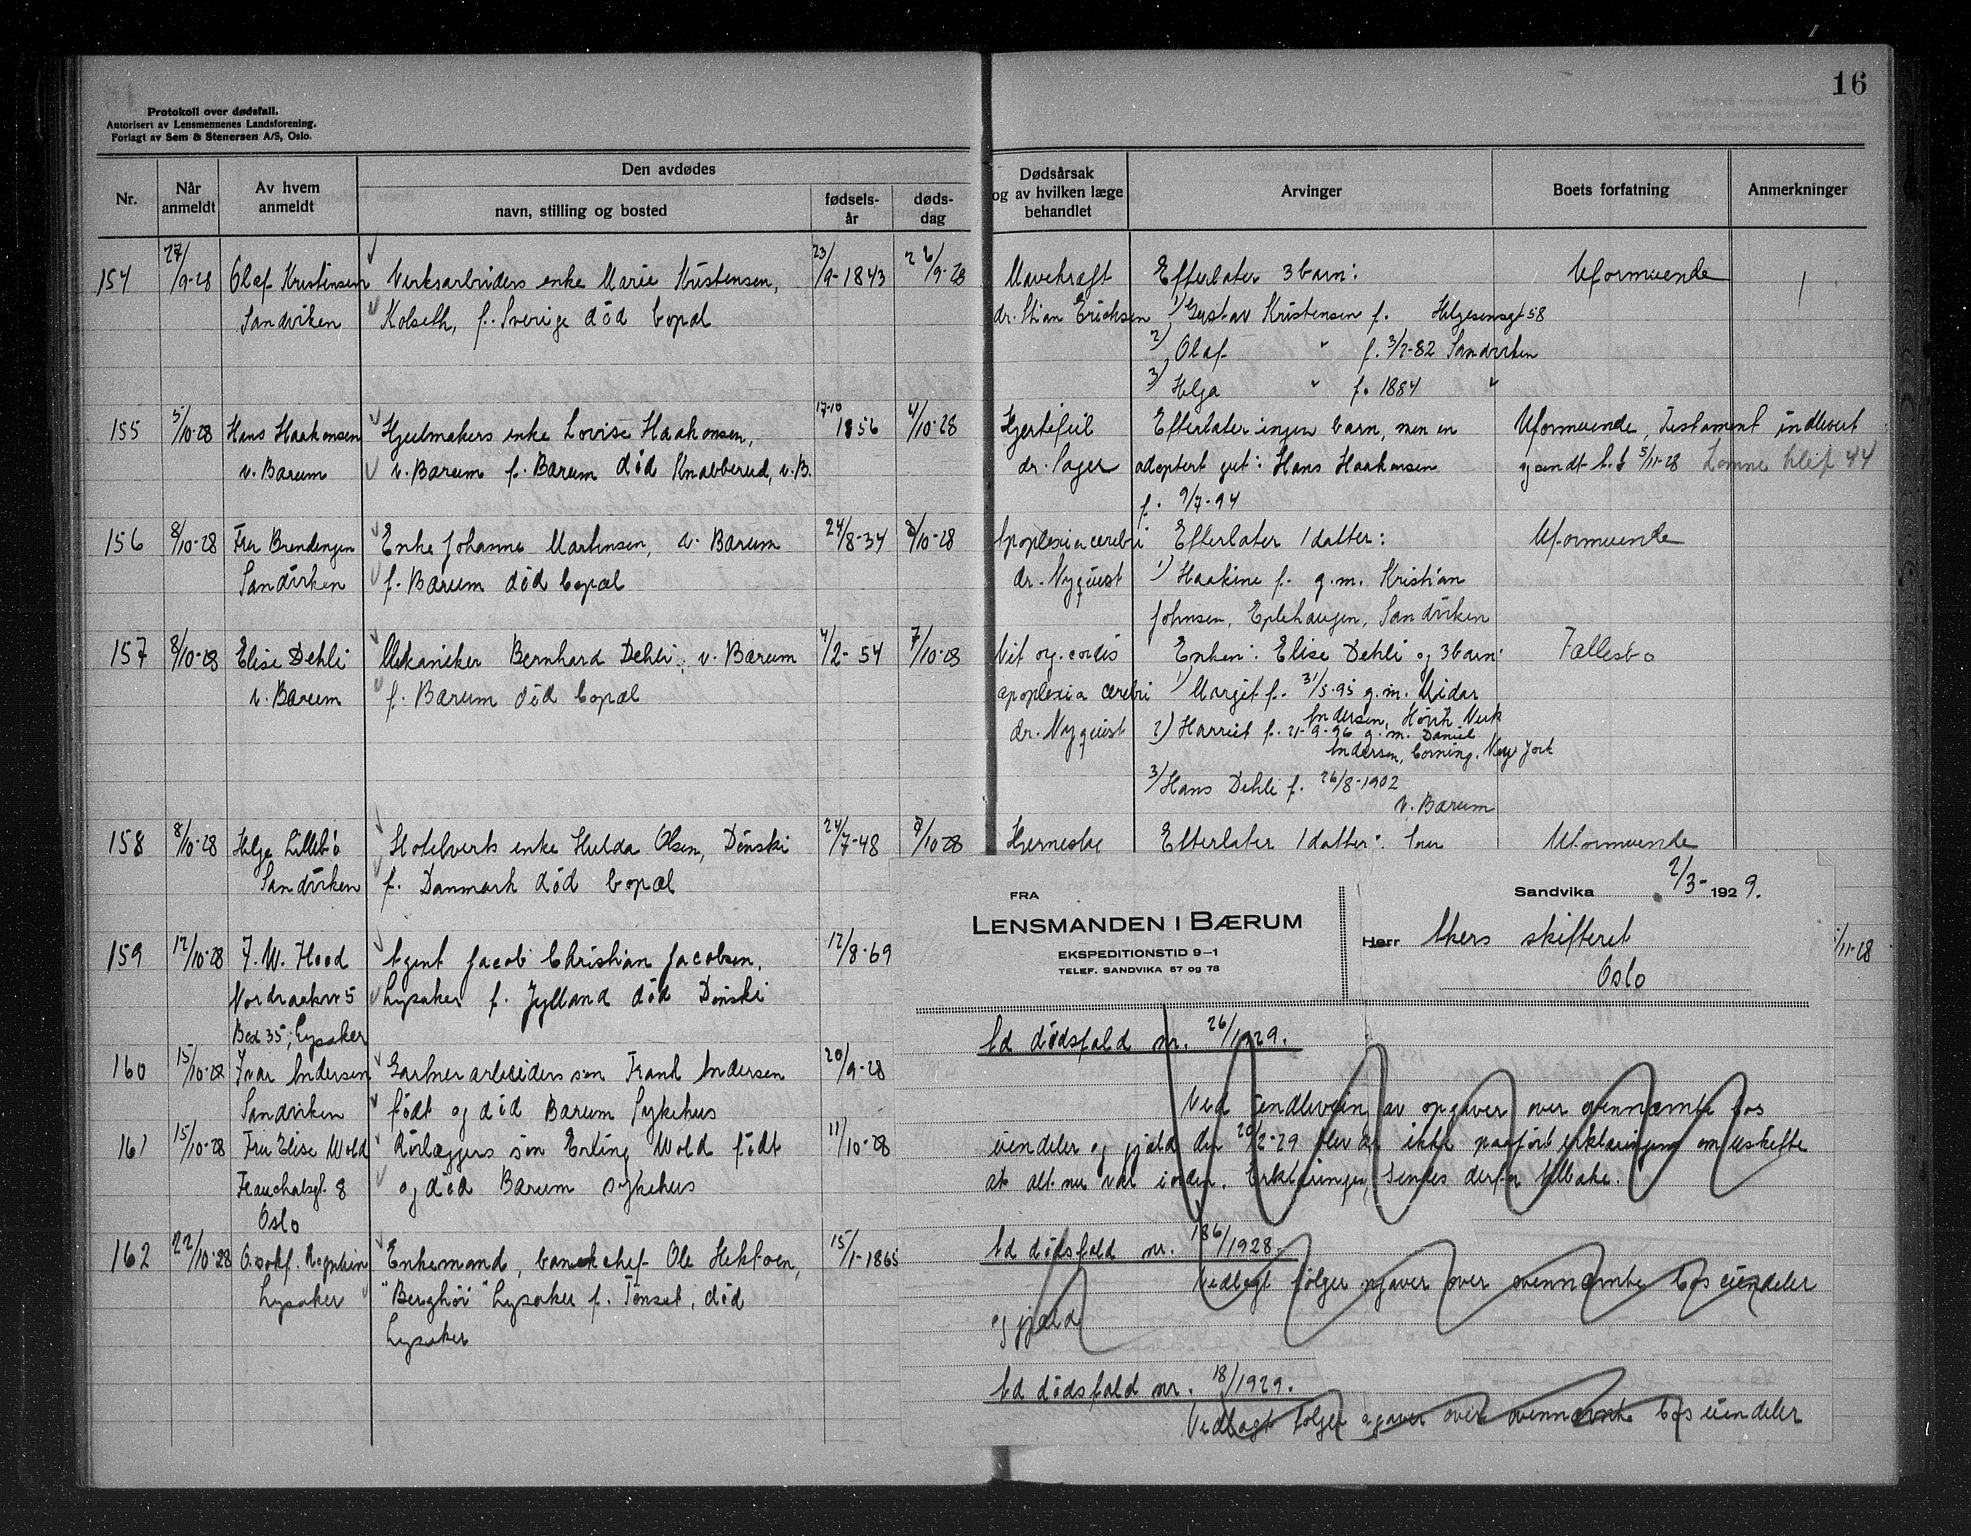 16
Protokoll over dødsfall.
Autorisert av Lensmennenes Landsforening.
Forlagt av Sem & Stenersen A/S, Oslo.
Nr.
Når anmeldt
Av hvem anmeldt
Den avdødes
navn, stilling og bosted
fødselsår
dødsdag
Dødsårsak og av hvilken læge behandlet
Arvinger
Boets forfatning
Anmerkninger
154 27/9-28 Olaf Kristensen Verksarbeiders enke Marie Kristensen, 23/9-1843 26/9-28 Mavekræft Efterlater 3 barn: Uformuende
Sandviken Kolseth, f. Sverige død bopæl dr. Stian Erichsen 1) Gustav Kristensen f. Helgesensgt 58
2) Olaf " f. 3/7-82 Sandviken
3) Helga " f. 1884 "
155 5/10-28 Hans Haakonsen Hjulmakers enke Lovise Haakonsen, 17-10 1856 4/10-28 Hjertefeil Efterlater ingen barn, men en Uformuende, Testament indlevert
v. Bærum v. Bærum f. Bærum død Knabberud, v. B. dr. Sager adoptert gut: Hans Haakonsen
f. 9/7-94
156 8/10-28 Fru Brendengen Enke Johanne Martinsen, v. Bærum 24/8-34 8/10-28 Apoplexia cerebri Efterlater 1 datter: Uformuende
Sandviken f. Bærum død bopæl dr. Nyquist 1) Haakine f. g.m. Kristian
Johnsen, Eplehaugen, Sandviken
157 8/10-28 Elise Dehli Mekaniker Bernhard Dehli, v. Bærum 4/2-54 7/10-28 Vit. og. cordis Enken: Elise Dehli og 3 barn: Fællesbo
v. Bærum f. Bærum død bopæl apoplexia cerebri 1) Margit f. 31/5-95 g.m. Midar
Andersen, Verk
dr. Nyquist 2) Harriet f. 21-9-96 g.m. Daniel
Andersen, Corning, New York
3) Hans Dehli f. 26/8-1902
v. Bærum
158 8/10-28 Helga Lillebø Hotelverts enke Hulda Olsen, Dønski 24/7-48 7/10-28 Hjerneslag Efterlater 1 datter: Uformuende
Sandviken f. Danmark død bopæl
159 12/10-28 F. W. Hood Agent Jacob Christian Jacobsen, 12/8-69
Nordraakvn 5 Lysaker f. Jylland død Dønski /11-28
Box 35, Lysaker
160 15/10-28 Ivar Andersen Gartnerarbeiders søn Frank Andersen 20/9-28
Sandviken født og død Bærum Sykehus
161 15/10-28 Fru Elise Wold Rørlæggers søn Erling Wold født 11/10-28
Fauchalsgt. 8 og død Bærum sykehus
Oslo
162 22/10-28 O.sakf. Enkemand, bankchef Ole Hektoen, 15/1-1865
Lysaker "Berghøi" Lysaker f. Tønset, død
Lysaker
FRA
LENSMANDEN I BÆRUM
EKSPEDITIONSTID 9-1
TELEF. SANDVIKA 57 og 78
Sandvika 2/3- 1929.
Herr Akers skifteret
Oslo
Ad dødsfald nr. 26/1929.
Ved indlevering av opgaver over ovennævnte bos
eiendeler og gjæld den 20/2-29 blev der ikke paaført erklæringen om uskiftet
at alt nu var i orden. Erklæringen sendes derfor tilbake.
Ad dødsfald nr. 136/1928.
Vedlagt følger opgaver over ovennævnte bos eiendeler
og gjæld
Ad dødsfald nr. 18/1929.
Vedlagt følger opgaver over ovennævnte bos eiendeler